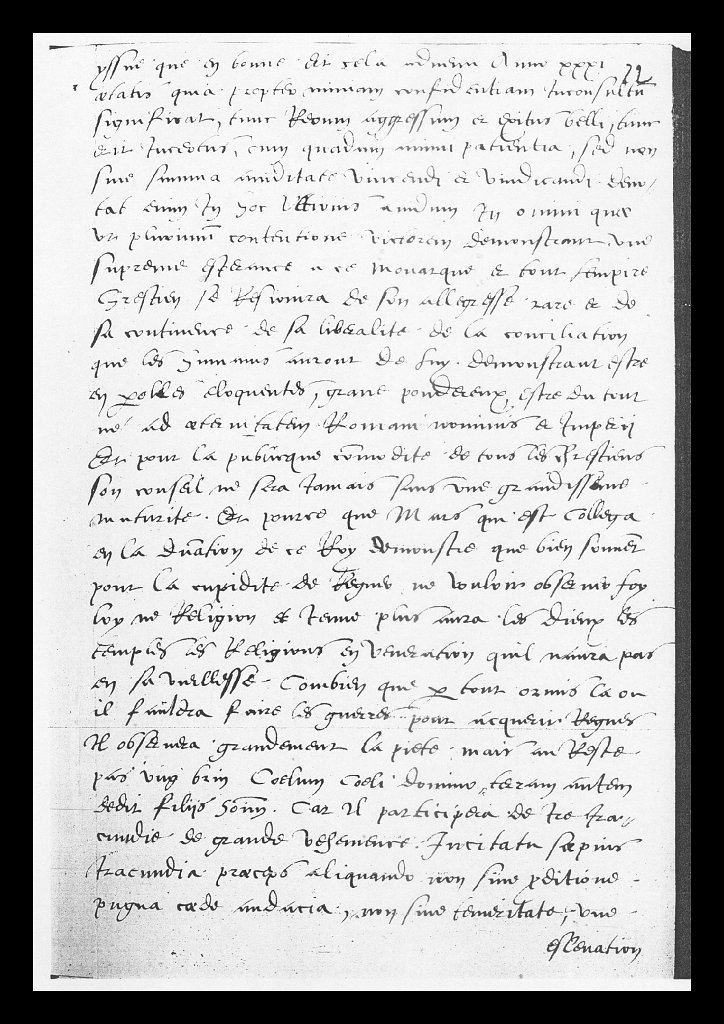 yssue que en bonne et cela adviena Anno xxxi
72
ætatis quia propter nimiam confidentiam Inconsultũ
significat, tunc Regum aggressum et exitus belli, tunc
erit Inceptus, cum quadam animi patientia, sed non
sine summa aviditate vincendi et vindicandi deno-
tat enim In hoc ultionis avidum In omni quæ
ut plurimũ contentione victorem demonstrant, une
supreme esperance a ce monarque et tout lempire
Crestien se Resiouira de son allegresse rare et de
sa continence de sa liberalite de la conciliation
que les humains auront de luy demonstrant estre
en parolles eloquentes, grave pondereux, estre du tout
né ad æternitatem Romani nominis et Imperii
Et pour la publicque cõmodite de tous les chrestiens
son conseil ne sera Iamais sans une grandissime
maturite. Et pource que Mars qui est Collega
en la duration de ce Roy demonstre que bien souvẽt
pour la cupidite de Regner ne vouloir observer foy
loy ne Religion et Ieune plus aura les dieux les
temples les Religions en veneration quil naura pas
en sa vieillesse. Combien que par tout ormis la ou
il fauldra faire les guerres pour acquerir Regnes
Il observera grandement la piete mais au Reste
pas ung brin Coelum Coeli domino, terram autem
dedit filiis homĩ. Car Il participera de Ire Ira-
cundie de grande vehemence. Incitatu sæpius
Iracundia præceps aliquando non sine proditione
pugna cæde audacia, non sine temeritate, une
eslevation